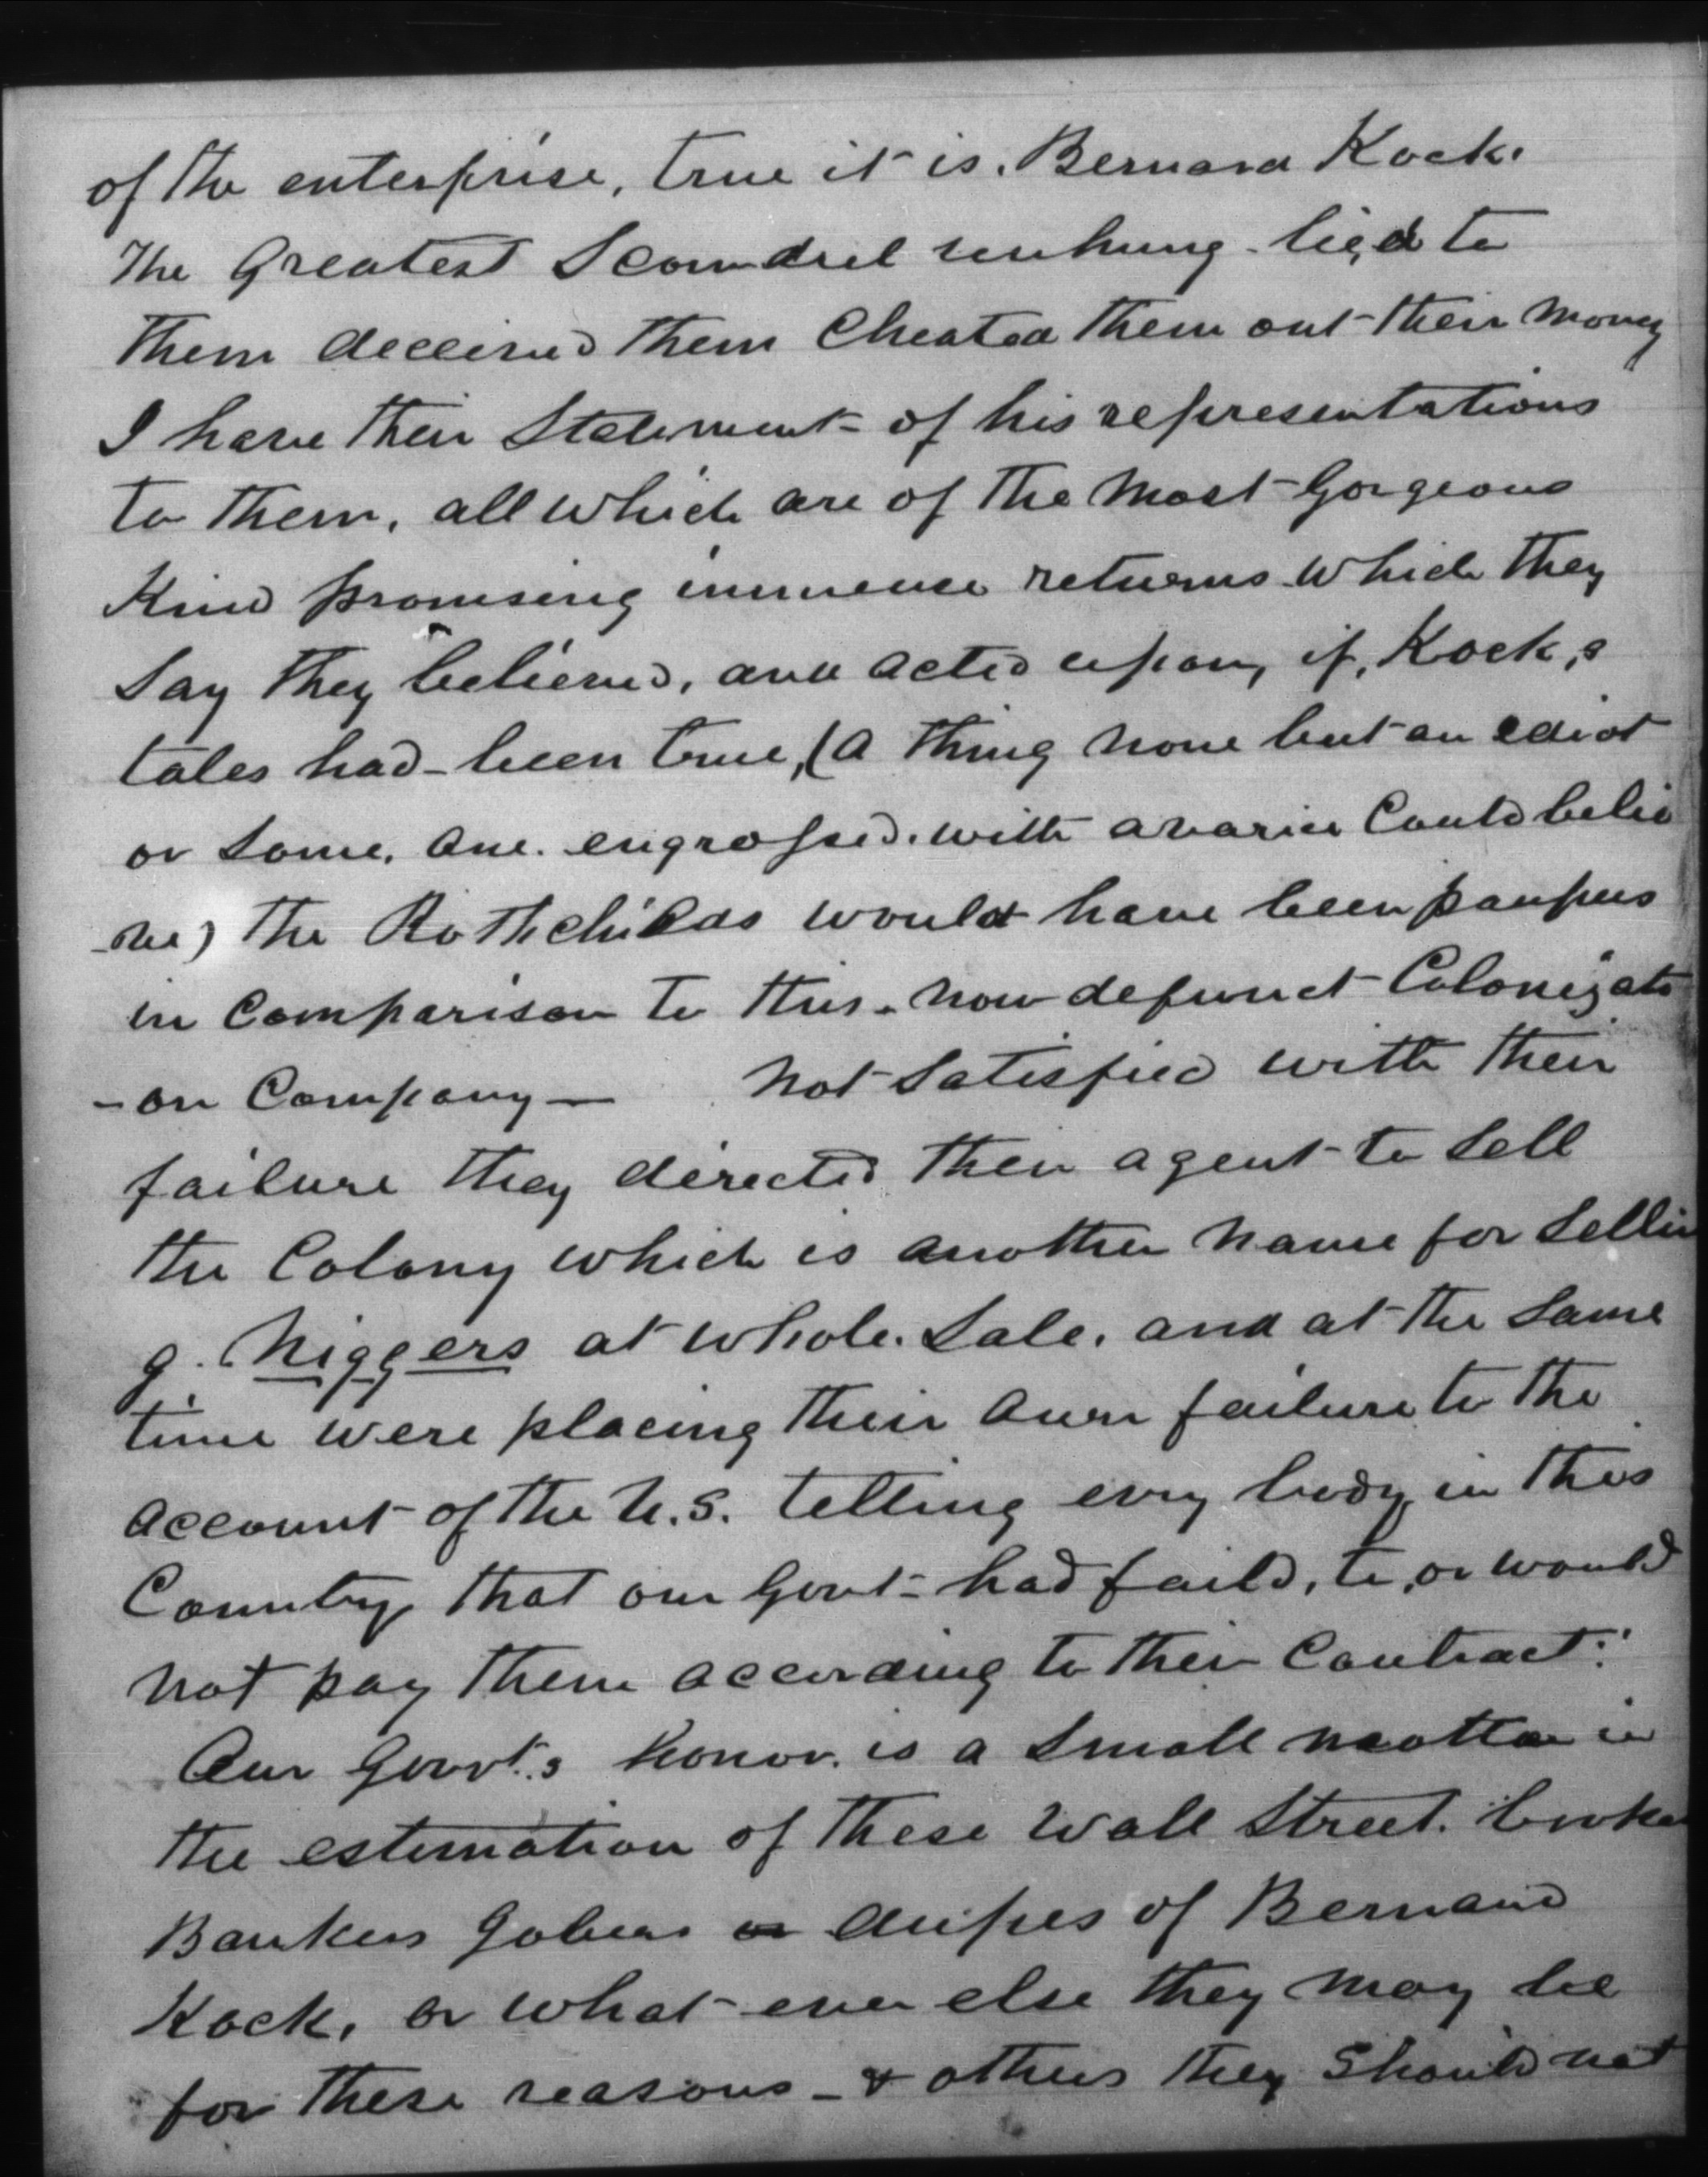 of the enterprise, true it is. Bernard Kock.
The Greatest Scoundrel unhung - lied to
Them deceived Them Cheated Them out their money
I have their Statement of his representations
to Them, all which are of the most Gorgeous
Kind promising immence returns which they
Say they believed, and acted upon, if, Kock,s
tales had been true, (a thing none but an edeot
or some, one. engrossed. with avarice Could belie
-ve) The Rothchilds would have been paupers
in Comparison to this. now defunct Colonizati
-on Company — Not Satisfied with their
failure they directed their agent to Sell
the Colony which is another name for Sellin
g. Niggers at whole. Sale. and at the Same
time were placing their own failure to the
account of the U.S. telling evry body in this
Country, that our Govt had faild, to, or would
not pay them according to their Contract.
Our Govvt.s honor. is a Small matter in
the estimation of these Wall Street. broke
Bankers Gobers or dupes of Bernard
Kock, or what ever else they may be
for these reasons - & others they Should not